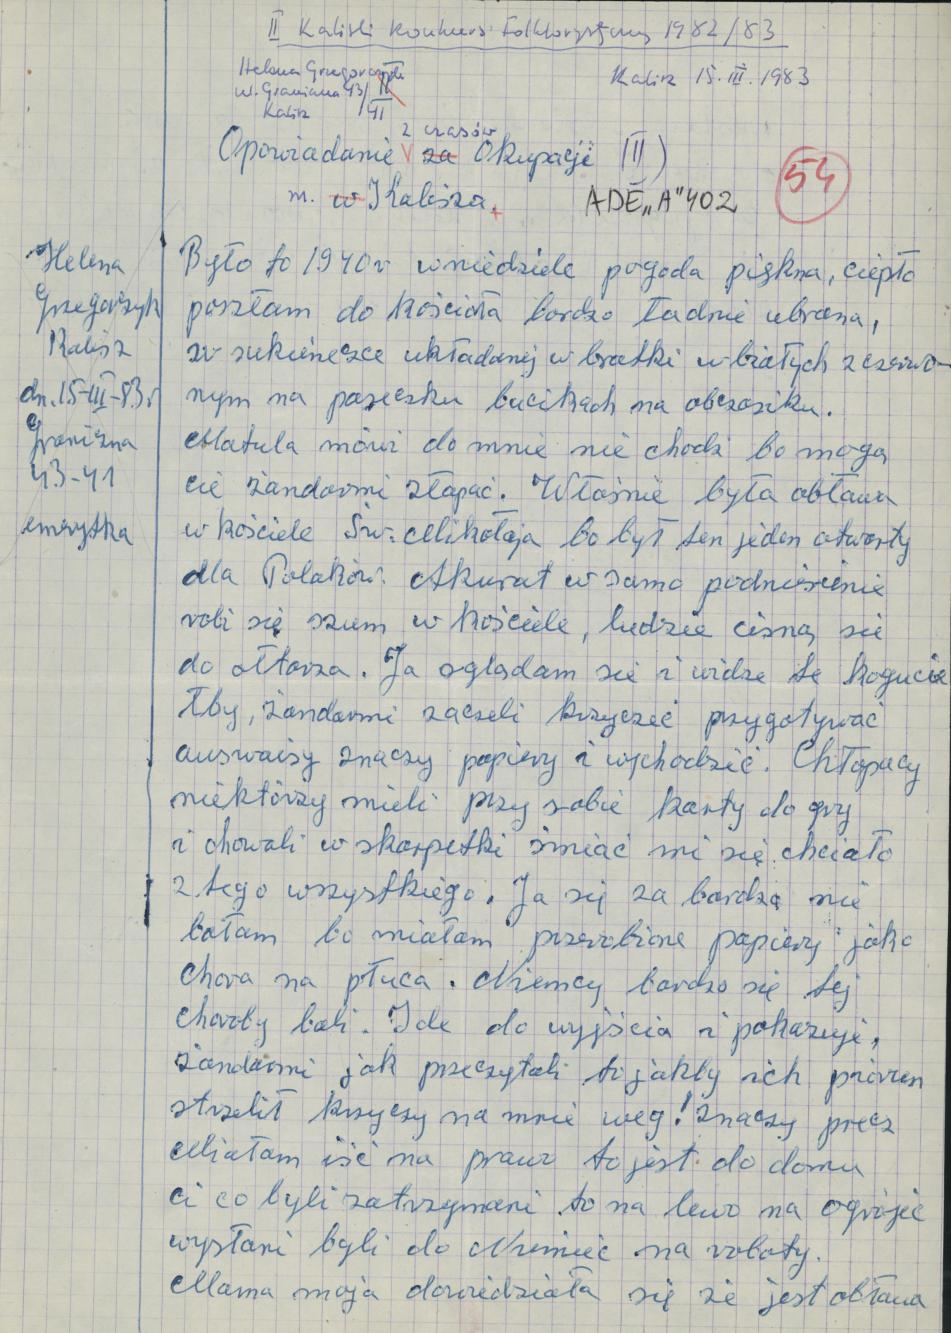 II Kaliski Konkurs Folklorystyczny 1982/83
Helena Grzegorczyk
ul. Graniczna 43/
41
Kalisz
Kalisz 15.III.1983
z czasów
Opowiadanie za Okupacji (II)
m. w Kalisza.
ADE „A" 402
54
Helena
Grzegorzyk
Kalisz
dn. 15-III-83r
Graniczna
43-41
emerytka
Było to 1940r w niedziele pogoda piękna, ciepło
poszłam do kościoła bardzo ładnie ubrana,
w sukieneczce układanej w bratki w białych z czerwo-
nym na paseczku bucikach na obczasiku.
Matula mówi do mnie nie chodź bo mogą
cię żandarmi złapać. Właśnie była obława
w kościele Św. Mikołaja bo był ten jeden otwarty
dla Polaków. Akurat w samo podniesienie
robi się szum w kościele, ludzie cisną się
do ołtarza. Ja oglądam się i widze te kogucie
łby, żandarmi zaczeli krzyczeć przygotywać
auswaisy znaczy papiery i wychodzić. Chłopacy
niektórzy mieli przy sobie karty do gry
i chowali w skarpetki śmiać mi się chciało
z tego wszystkiego. Ja się za bardzo nie
bałam bo miałam przerobione papiery jako
chora na płuca. Niemcy bardzo się tej
choroby bali. Ide do wyjścia i pokazuje,
żandarmi jak przeczytali to jakby ich piorun
strzelił krzyczy na mnie weg! znaczy precz
Miałam iść na prawo to jest do domu
ci co byli zatrzymani to na lewo na ogrójec
wysłani byli do Niemiec na roboty.
Mama moja dowiedziała się że jest obława